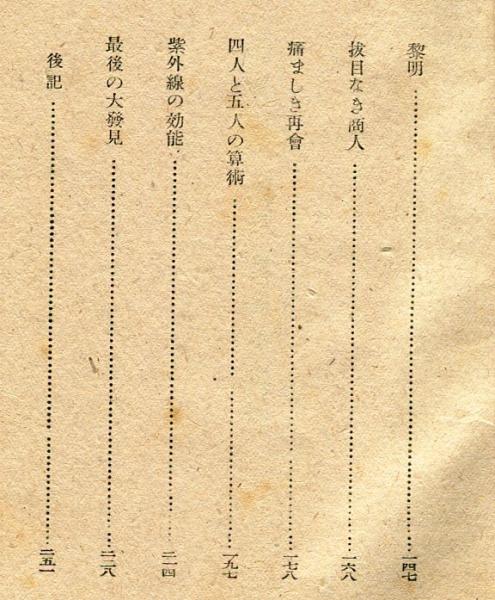 黎明……一四七
拔目なき商人……一六八
痛ましき再會……一七八
四人と五人の算術……一九七
紫外線の効能……二一四
最後の大發見……二二八
後記……二五一